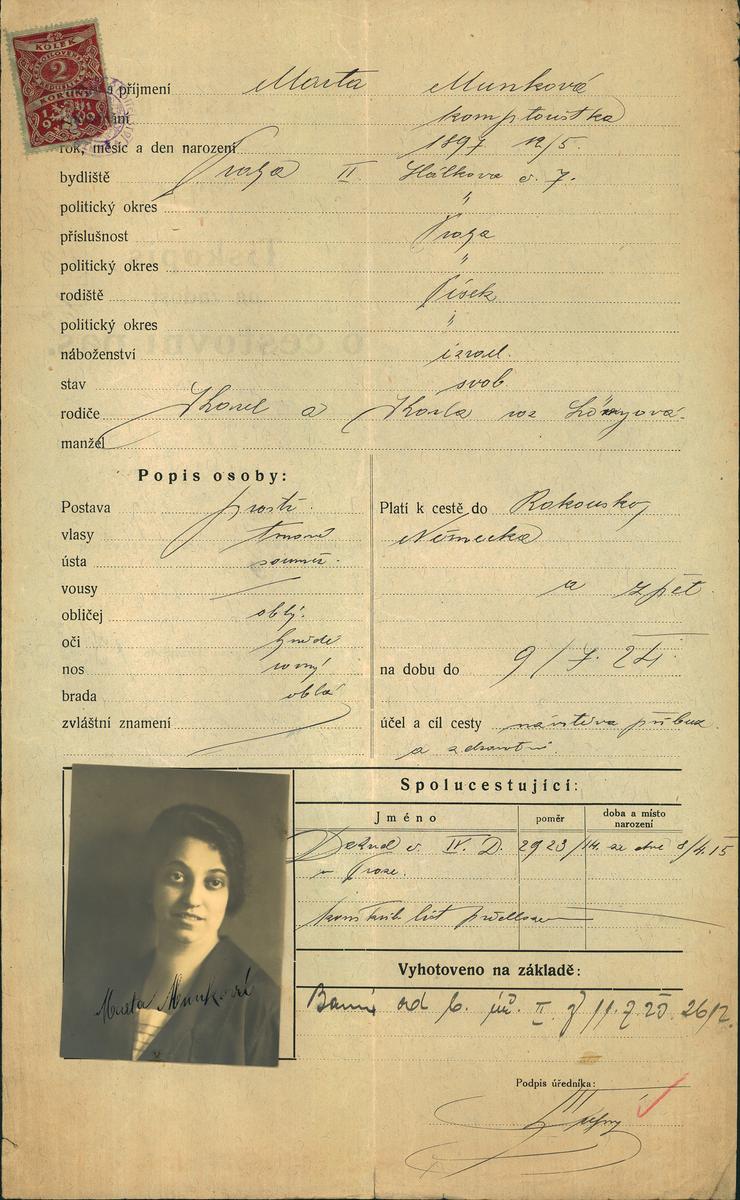 KOLEK
2
KORUNY
a příjmení Marta Munková
ání
rok, měsíc a den narození 1897 12/5.
bydliště Praga II Hálkova č. 7.
politický okres "
příslušnost Praga
politický okres "
rodiště Písek
politický okres "
náboženství israel.
stav svob.
rodiče Karel a Karla roz
manžel
Popis osoby:
Postava prostř.
vlasy tmavé
ústa souměr.
vousy
obličej oblý.
oči hnědé
nos rovný
brada oblá
zvláštní znamení
Platí k cestě do Rakouska,
Německa
a zpět
na dobu do 9/7. 24.
účel a cíl cesty návštěva příbuz.
a zdravotní.
Spolucestující:
Jméno poměr doba a místo
narození
č. IV. D. 2923/14. ze dne 8/4.15
v Praze.
Marta Munková
Vyhotoveno na základě:
od b. II
Podpis úředníka: